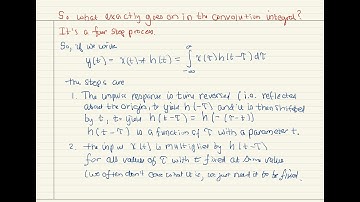 So what exactly goes on in the convolution integral?
It's a four step process.
So, if we write
y(t) = x(t) * h(t) = ∫_{-∞}^{∞} x(τ) h(t-τ) dτ
the steps are
1. The impulse response is time reversed (i.e. reflected
about the origin, to yield h(-τ) and is then shifted
by t, to yield h(t-τ) = h(-(τ-t))
h(t-τ) is a function of τ with a parameter t.
2. The input x(τ) is multiplied by h(t-τ)
for all values of τ with t fixed at some value
(we often don't care what it is, we just need it to be fixed.